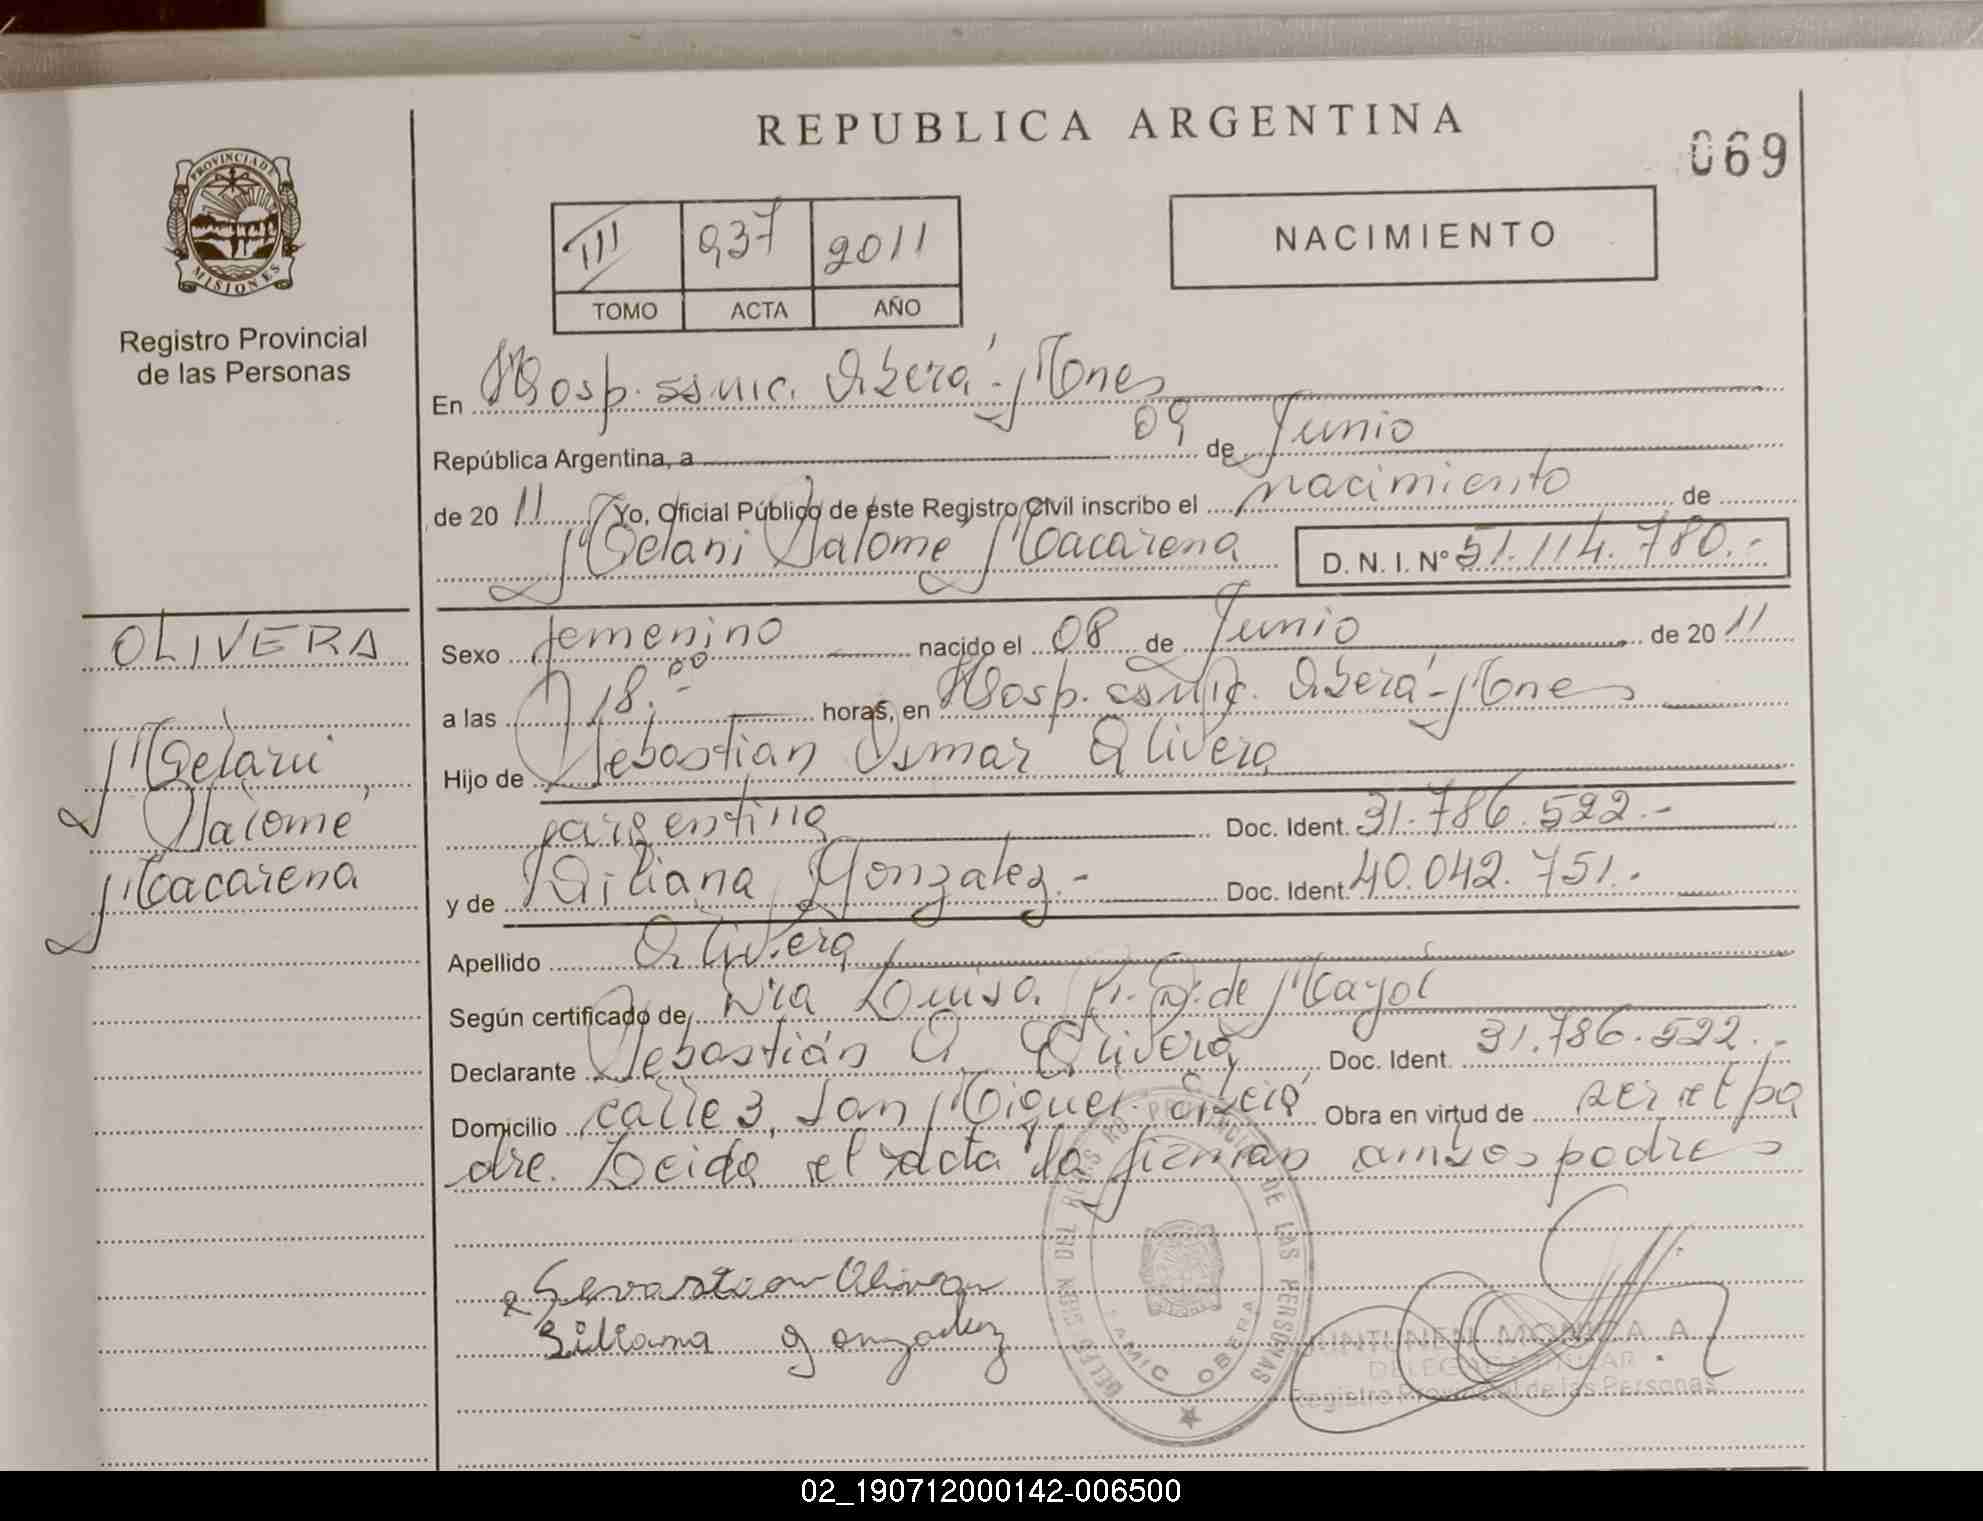 REPUBLICA ARGENTINA
069
PROVINCIA DE MISIONES
Registro Provincial
de las Personas
III 937 2011
TOMO ACTA AÑO
NACIMIENTO
En Hosp. ssmic. Oberá - Mones
República Argentina, a 09 de Junio
de 2011 Yo, Oficial Público de este Registro Civil inscribo el nacimiento de
Melani Salomé Macarena D. N. I. Nº 51.114.780.-
OLIVERA
Melani
Salomé
Macarena
Sexo femenino nacido el 08 de Junio de 2011
a las 18.00 horas, en Hosp. ssmic. Oberá - Mones
Hijo de Sebastian Osmar Olivera
argentino Doc. Ident. 31.786.522.-
y de Liliana Gonzalez.- Doc. Ident. 40.042.751.-
Apellido Olivera
Según certificado de Dra Luisa R. D. de Mayol
Declarante Sebastián O Olivera Doc. Ident. 31.786.522.-
Domicilio calle 3, San Miguel Oberá Obra en virtud de ser el pa
dre. Leida el acta la firman ambos padres
Sevastian Olivera
Liliana gonzalez
REGISTRO PROVINCIAL DE LAS PERSONAS
SAMIC OBERA
MONICA A
Registro Provincial de las Personas
02_190712000142-006500